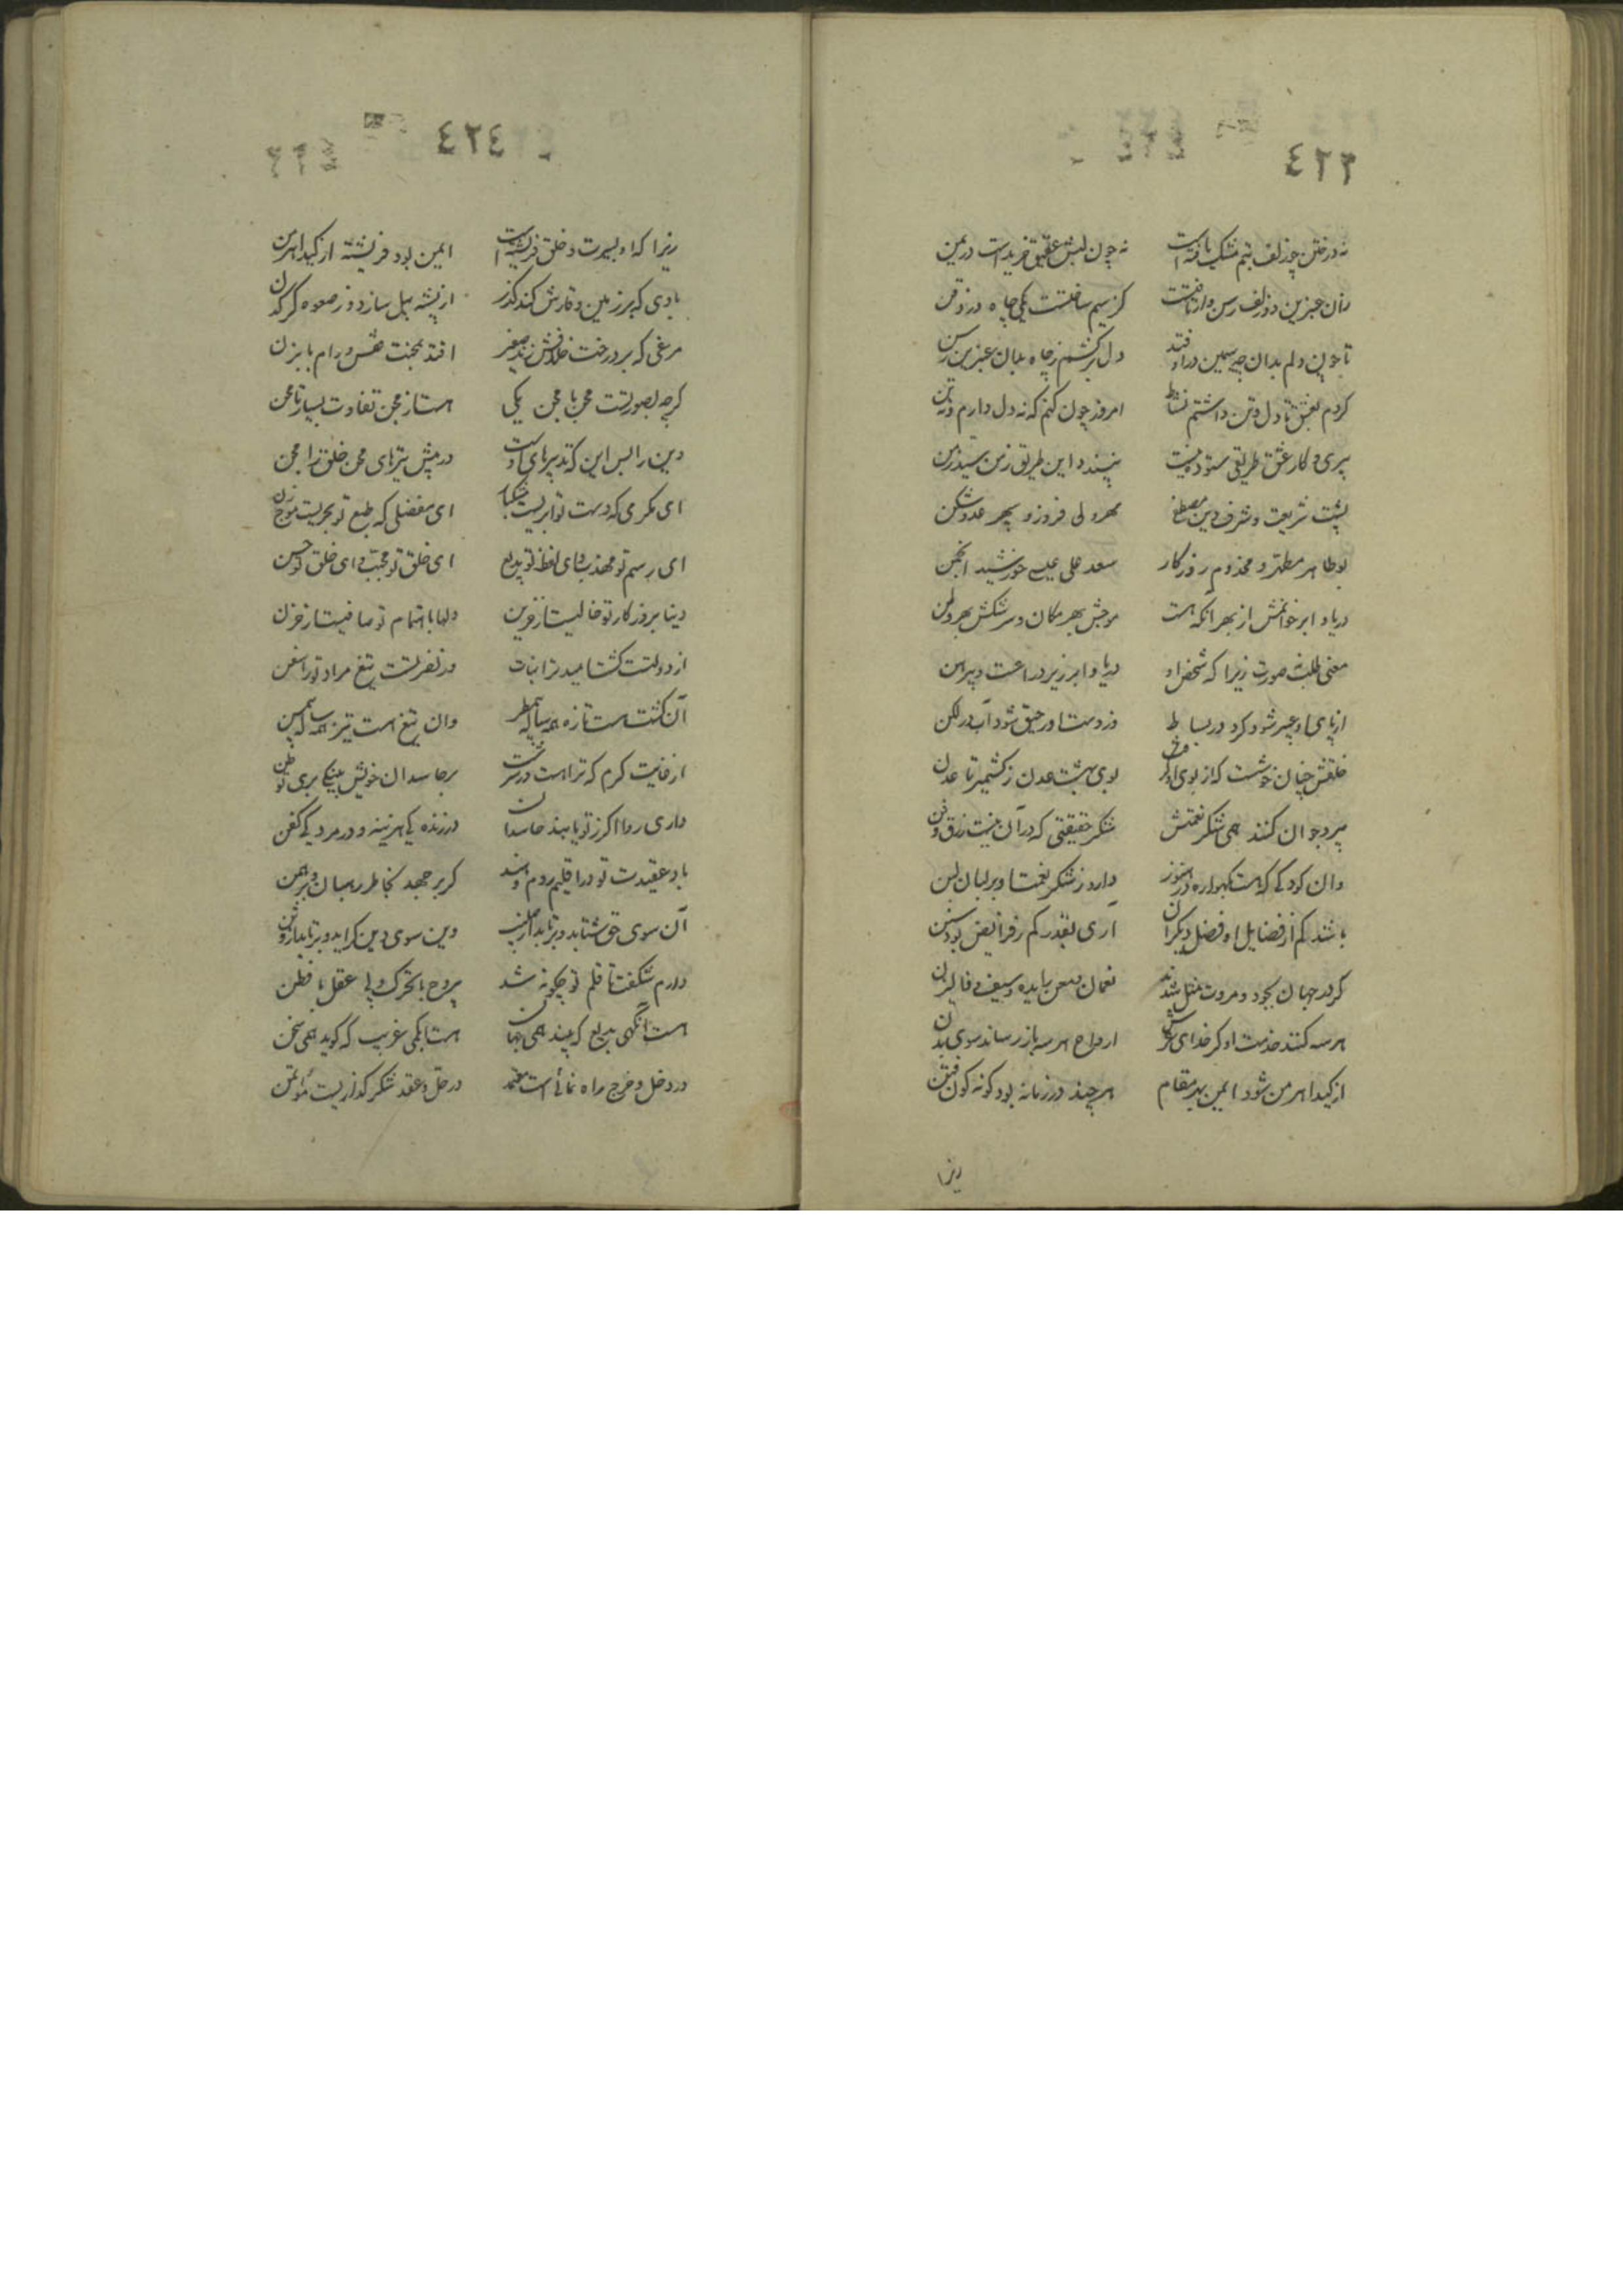 ٤٢٣
نه در ختن چو زلف بتم مشک یافته است نه چون لبش عقیق خریده است در یمن
زان عنبرین دو زلف رسن وار تافتست کز سیم ساختست یکی چاه در ذقن
تا چون دلم بدان چه سیمین در اوفتد دل برکشم ز چاه بدان عنبرین رسن
کردم بعشق تا دل و تن داشتم نشاط امروز چون کنم که نه دل دارم و نه تن
پیری و کار عشق طریقی ستوده نیست نپسندد این طریق ز من سید زمن
پشت شریعت و شرف دین مصطفی مهر ولی فروز و سپهر عدو شکن
بوطاهر مطهر و مخدوم روزکار سعد علی عیسی خورشید انجمن
دریا و ابر خوانمش از بهر انکه هست موجش بهر مکان و سرشکش بهر وطن
معنی طلب نه صورت زیرا که شخص او دریا و ابر زیر دراعت و پیرهن
از پای او عبیر شود کرد در بساط وز دست او رحیق شود آب در لکن
خلقش چنان خوشست که از بوی او بوی بهشت عدن ز کشمیر تا عدن
پیر و جوان کنند همی شکر نعمتش شکر حقیقتی که در آن نیست زرق و فن
وان کودکی که هست بکهواره در هنوز دارد ز شکر نعمت او بر لبان لبن
باشد کم از فضایل او فضل دیکران آری بقدر کم ز فرایض بود سنن
کرد جهان بجود و مروت مثل شدند نعمان و معن زایده و سیف
هر سه کنند خدمت او کر خدای عرش ارواح هر سه باز رساند سوی بدن
از کید اهرمن شود ایمن بهر مقام هر چند در زمانه بود کونه کون فتن
زیرا
٤٢٤
زیرا که او بسیرت و خلق فریشته است ایمن بود فریشته از کید اهرمن
بادی که بر زمین وقارش کند کذر از پشه پیل سازد و ز صعوه کرکدن
مرغی که بر درخت خلافش زند صفیر افتد بمحنت قفس و دام بابزن
کرچه بصورتست محن با مجن یکی هست از مجن تفاوت بسیار تا محن
دین را بس این که تدبیرهای اوست در پیش تیرهای محن خلق را مجن
ای مکرمی که دست تو ابریست ای مفضلی که طبع تو بحریست موج زن
ای رسم تو مهذب و ای لفظ تو بدیع ای خلق تو محبب و ای خلق تو حسن
دنیا بروزکار تو خالیست از فزین دلها باهتمام تو صافیست از حزن
از دولتست کشت امید ترا نبات وز نصرتست تیغ مراد ترا سفن
آن کشت هست تازه همه ساله بی مطر وان تیغ هست تیز همه ساله بی مسن
از غایت کرم که ترا هست در سرشت بر حاسدان خویش بنیکی بری تو ظن
داری روا اکر ز تو یابند حاسدان در زنده یک هزینه و در مرده یک کفن
باد عقیدت تو در اقلیم روم و هند کر بر جهد بخاطر رهبان و برهمن
آن سوی حق شتابد و برتابد از صلیب وین سوی دین کراید و برتابد از وثن
دارم شکفت تا قلم تو چکونه شد بی روح با تحرک و بی عقل با فطن
هست انکهی بدیع که بیند همی نهان هست ابکمی غریب که کوید همی سخن
در دخل و خرج راه نمائی است معتمد در حل و عقد شکر کذاریست مؤتمن